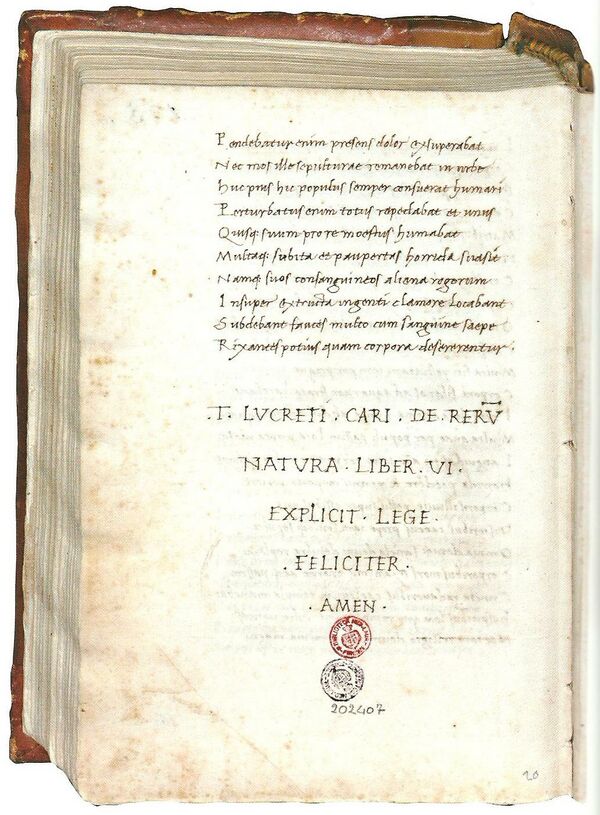 Pendebatur enim presens dolor exsuperabat
Nec mos ille sepulturae remanebat in urbe
Huc prius hic populus semper consuerat humari
Perturbatus enim totus repedabat et unus
Quisq; suum pro re moestus humabat
Multaq; subita et paupertas horrida suasit
Namq; suos consanguineos aliena rogorum
Insuper extructa ingenti clamore locabant
Subdebant fauces multo cum sanguine saepe
Rixantes potius quam corpora desererentur.
.T. LVCRETI . CARI . DE. RERV̅
NATVRA . LIBER. VI .
EXPLICIT . LEGE .
. FELICITER .
. AMEN .
202407